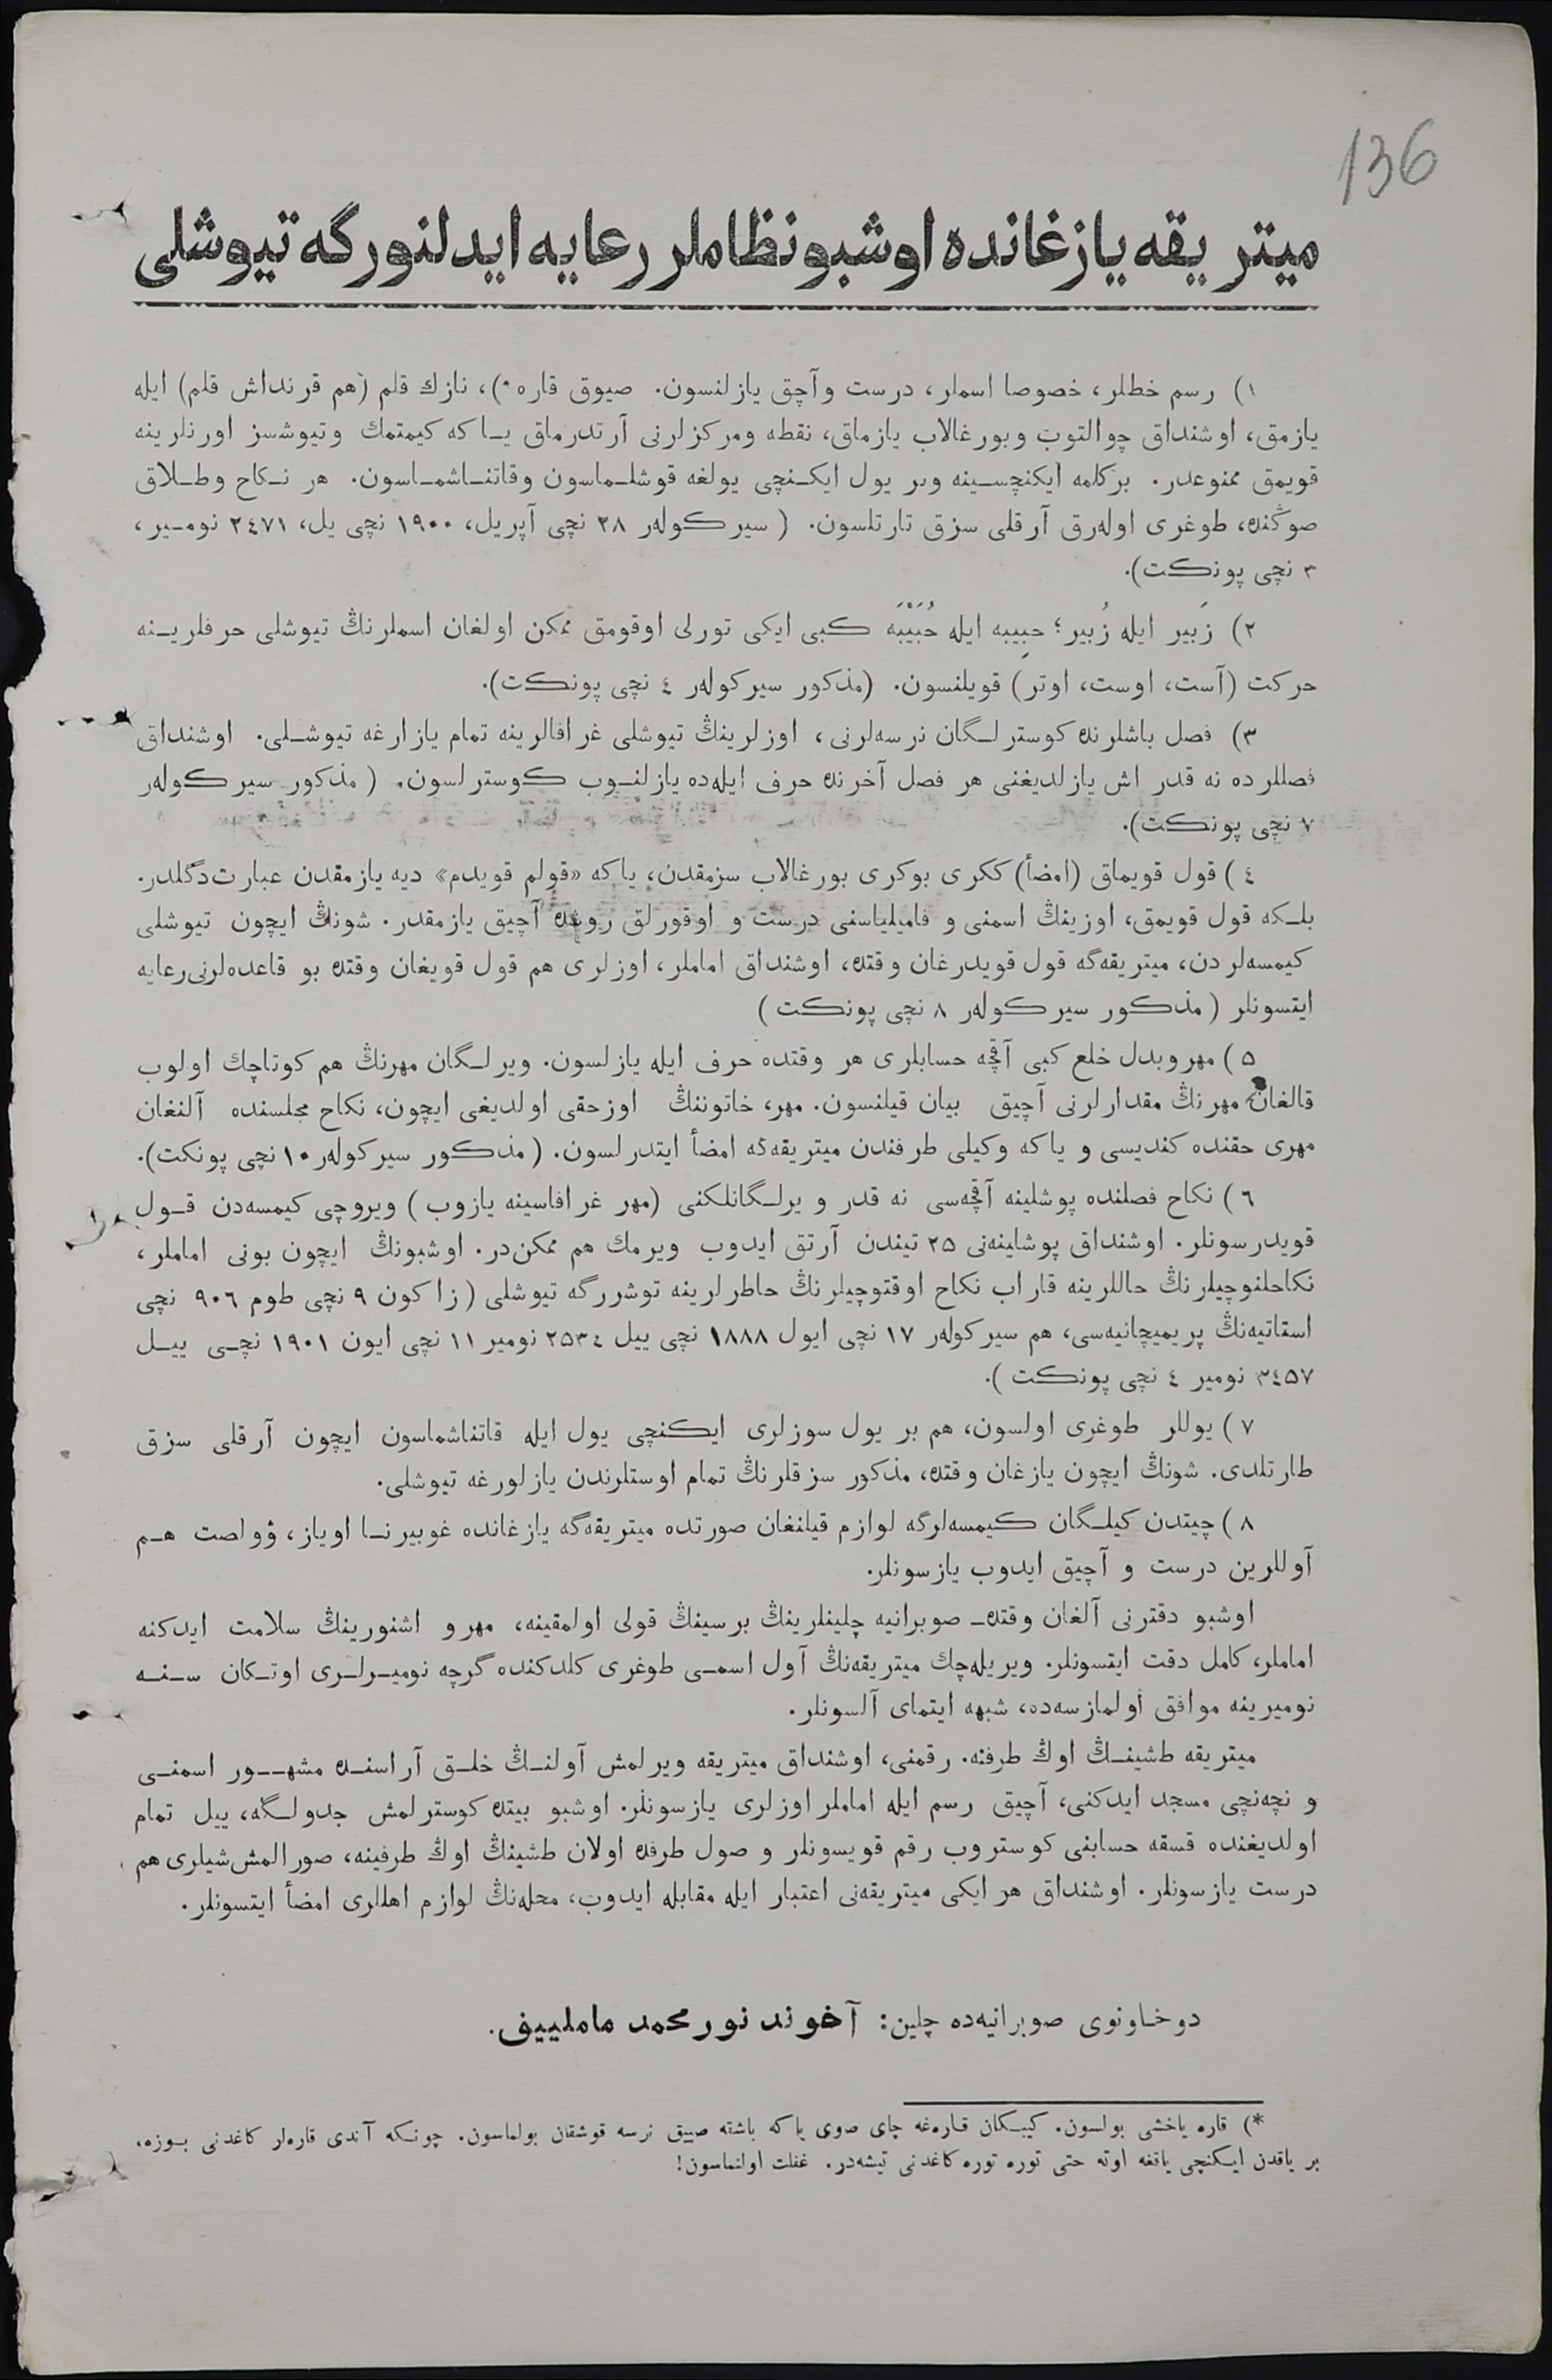 136
ميتريقه يازغانده اوشبو نظاملر رعايه ايدلنورگه تيوشلى
١) رسم خطلر، خصوصا اسملر، درست وآچق يازلنسون. صيوق قاره *)، نازك قلم (هم قرنداش قلم) ايله
يازمق، اوشنداق چوالتوب وبورغالاب يازماق، نقطه ومركزلرنى آرتدرماق يـاكه كيمتمك وتيوشسز اورنلرينه
قويمق ممنوعدر. بركلمه ايكنچسينه وبر يول ايكـنچى يولغه قوشلـماسون وقاتنـاشمـاسون. هر نـكاح وطـلاق
صوڭنده، طوغرى اولەرق آرقلى سزق تارتلسون. (سيركولەر ٢٨ نچى آپريل، ١٩٠٠ نچى يل، ٢٤٧١ نومـير،
٣ نچى پونكت).
٢) زَبير ايله زُبير؛ حبِيبه ايله حُبَيْبَه كبى ايكى تورلى اوقومق ممكن اولغان اسملرنڭ تيوشلى حرفلريـنه
حركت (آست، اوست، اوتر) قويلنسون. (مذكور سيركولەر ٤ نچى پونكت).
٣) فصل باشلرنده كوسترلـگان نرسەلرنى، اوزلرينڭ تيوشلى غرافالرينه تمام يازارغه تيوشـلى. اوشنداق
فصللرده نه قدر اش يازلديغنى هر فصل آخرنده حرف ايلەده يازلنـوب كوسترلسون. (مذكور سيركولەر
٧ نچى پونكت).
٤) قول قويماق (امضأ) ككرى بوكرى بورغالاب سزمقدن، ياكه «قولم قويدم» ديه يازمقدن عبارت دگلدر.
بلـكه قول قويمق، اوزينڭ اسمنى و فاميلياسنى درست و اوقورلق روشده آچيق يازمقدر. شونڭ ايچون تيوشلى
كيمسەلردن، ميتريقەگه قول قويدرغان وقتده، اوشنداق اماملر، اوزلرى هم قول قويغان وقتده بو قاعدەلرنى رعايه
ايتسونلر (مذكور سيركولەر ٨ نچى پونكت)
٥) مهر وبدل خلع كبى آقچه حسابلرى هر وقتده حرف ايله يازلسون. ويرلـگان مهرنڭ هم كوتاچك اولوب
قالغان مهرنڭ مقدارلرنى آچيق بيان قيلنسون. مهر، خاتوننڭ اوزحقى اولديغى ايچون، نكاح مجلسنده آلنغان
مهرى حقنده كنديسى و ياكه وكيلى طرفندن ميتريقەگه امضأ ايتدرلسون. (مذكور سيركولەر ١٠ نچى پونكت).
٦) نكاح فصلنده پوشلينه آقچەسى نه قدر ويرلـگانلكنى (مهر غرافاسينه يازوب) ويروچى كيمسەدن قـول
قويدرسونلر. اوشنداق پوشلينەنى ٢٥ تيندن آرتق ايدوب ويرمك هم ممكن در. اوشبونڭ ايچون بونى اماملر،
نكاحلنوچيلرنڭ حاللرينه قاراب نكاح اوقتوچيلرنڭ خاطرلرينه توشررگه تيوشلى (زاكون ٩ نچى طوم ٩٠٦ نچى
استاتيەنڭ پريميچانيەسى، هم سيركولەر ١٧ نچى ايول ١٨٨٨ نچى ييل ٢٥٣٤ نومير ١١ نچى ايون ١٩٠١ نچـى ييـل
٣٤٥٧ نومير ٤ نچى پونكت).
٧) يوللر طوغرى اولسون، هم بر يول سوزلرى ايكنچى يول ايله قاتناشماسون ايچون آرقلى سزق
طارتلدى. شونڭ ايچون يازغان وقتده، مذكور سزقلرنڭ تمام اوستلرندن يازلورغه تيوشلى.
٨) چيتدن كيلـگان كيمسەلرگه لوازم قيلنغان صورتده ميتريقەگه يازغانده غوبيرنـا اوياز، ۋولصت هـم
آوللرين درست و آچيق ايدوب يازسونلر.
اوشبو دفترنى آلغان وقتده صوبرانيه چلينلرينڭ برسينڭ قولى اولمقينه، مهر و اشنورينڭ سلامت ايدكنه
اماملر، كامل دقت ايتسونلر. ويريلەچك ميتريقەنڭ آول اسمـى طوغرى كلدكنده گرچه نوميـرلـرى اوتـكان سـنـه
نوميرينه موافق اولمازسەده، شبهه ايتماى آلسونلر.
ميتريقه طشينـڭ اوڭ طرفنه. رقمنى، اوشنداق ميتريقه ويرلمش آولنـڭ خلـق آراسنـده مشهــور اسمنـى
و نچەنچى مسجد ايدكنى، آچيق رسم ايله اماملر اوزلرى يازسونلر. اوشبو بيتده كوسترلمش جدولـگه، ييل تمام
اولديغنده قسقه حسابنى كوستروب رقم قويسونلر و صول طرفده اولان طشينڭ اوڭ طرفينه، صورالمش شيلرى هم
درست يازسونلر. اوشنداق هر ايكى ميتريقەنى اعتبار ايله مقابله ايدوب، محلەنڭ لوازم اهللرى امضأ ايتسونلر.
دوخاونوى صوبرانيەده چلين: آخوند نورمحمد ماملييف.
*) قاره ياخشى بولسون. كيبـكان قـارەغه چاى صوى ياكه باشقه صييق نرسه قوشقان بولماسون. چونـكه آندى قارەلر كاغدنى بـوزه،
بر ياقدن ايـكنچى ياقغه اوته حتى توره توره كاغدنى تيشەدر. غفلت اولنماسون!